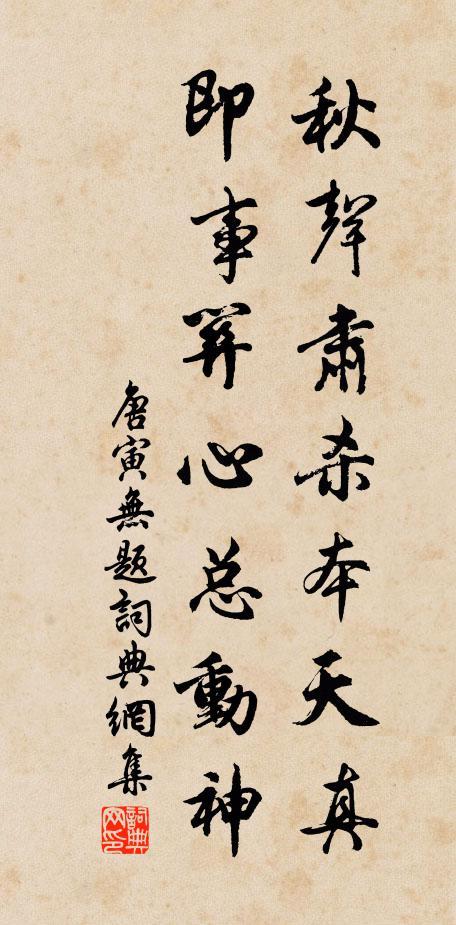 秋聲肅杀本天真
即事関心总動神
唐寅無題詞典網集
詞典网印